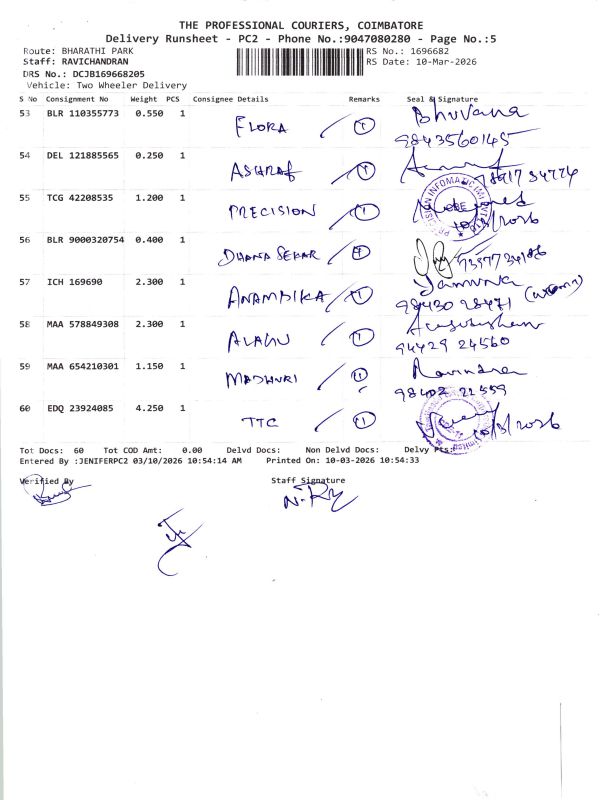 THE PROFESSIONAL COURIERS, COIMBATORE
Delivery Runsheet - PC2 - Phone No.:9047080280 - Page No.:5
Route: BHARATHI PARK RS No.: 1696682
Staff: RAVICHANDRAN RS Date: 10-Mar-2026
DRS No.: DCJB169668205
Vehicle: Two Wheeler Delivery
S No Consignment No Weight PCS Consignee Details Remarks Seal & Signature
53 BLR 110355773 0.550 1 FLORA 1 Bhuvana
9843560145
54 DEL 121885565 0.250 1 ASHRAF 1
55 TCG 42208535 1.200 1 PRECISION 1
10/3/2026
56 BLR 9000320754 0.400 1 DHANA SEKAR 1
57 ICH 169690 2.300 1 ANAMBIKA 1 Yamuna
98430 28471
58 MAA 578849308 2.300 1 ALAGU 1
94429 24560
59 MAA 654210301 1.150 1 MADHURI 1 Ravindran
98402 22559
60 EDQ 23924085 4.250 1 TTC 1
10/3/2026
Tot Docs: 60 Tot COD Amt: 0.00 Delvd Docs: Non Delvd Docs: Delvy Pts:
Entered By :JENIFERPC2 03/10/2026 10:54:14 AM Printed On: 10-03-2026 10:54:33
Verified By Staff Signature